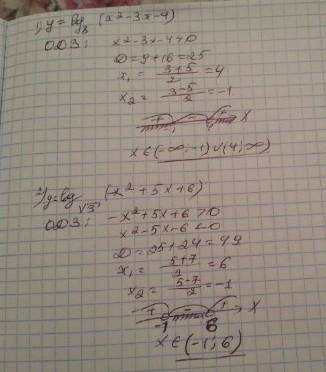 1) y = log₈ (x² - 3x - 4)
ОДЗ: x² - 3x - 4 > 0
D = 9 + 16 = 25
x₁ = (3+5)/2 = 4
x₂ = (3-5)/2 = -1
+ - + x
x ∈ (-∞; -1) ∪ (4; ∞)
2) y = log√3 (x² + 5x + 6)
ОДЗ: -x² + 5x + 6 > 0
x² - 5x - 6 < 0
D = 25 + 24 = 49
x₁ = (5+7)/2 = 6
x₂ = (5-7)/2 = -1
+ - + x
-1 6
x ∈ (-1; 6)